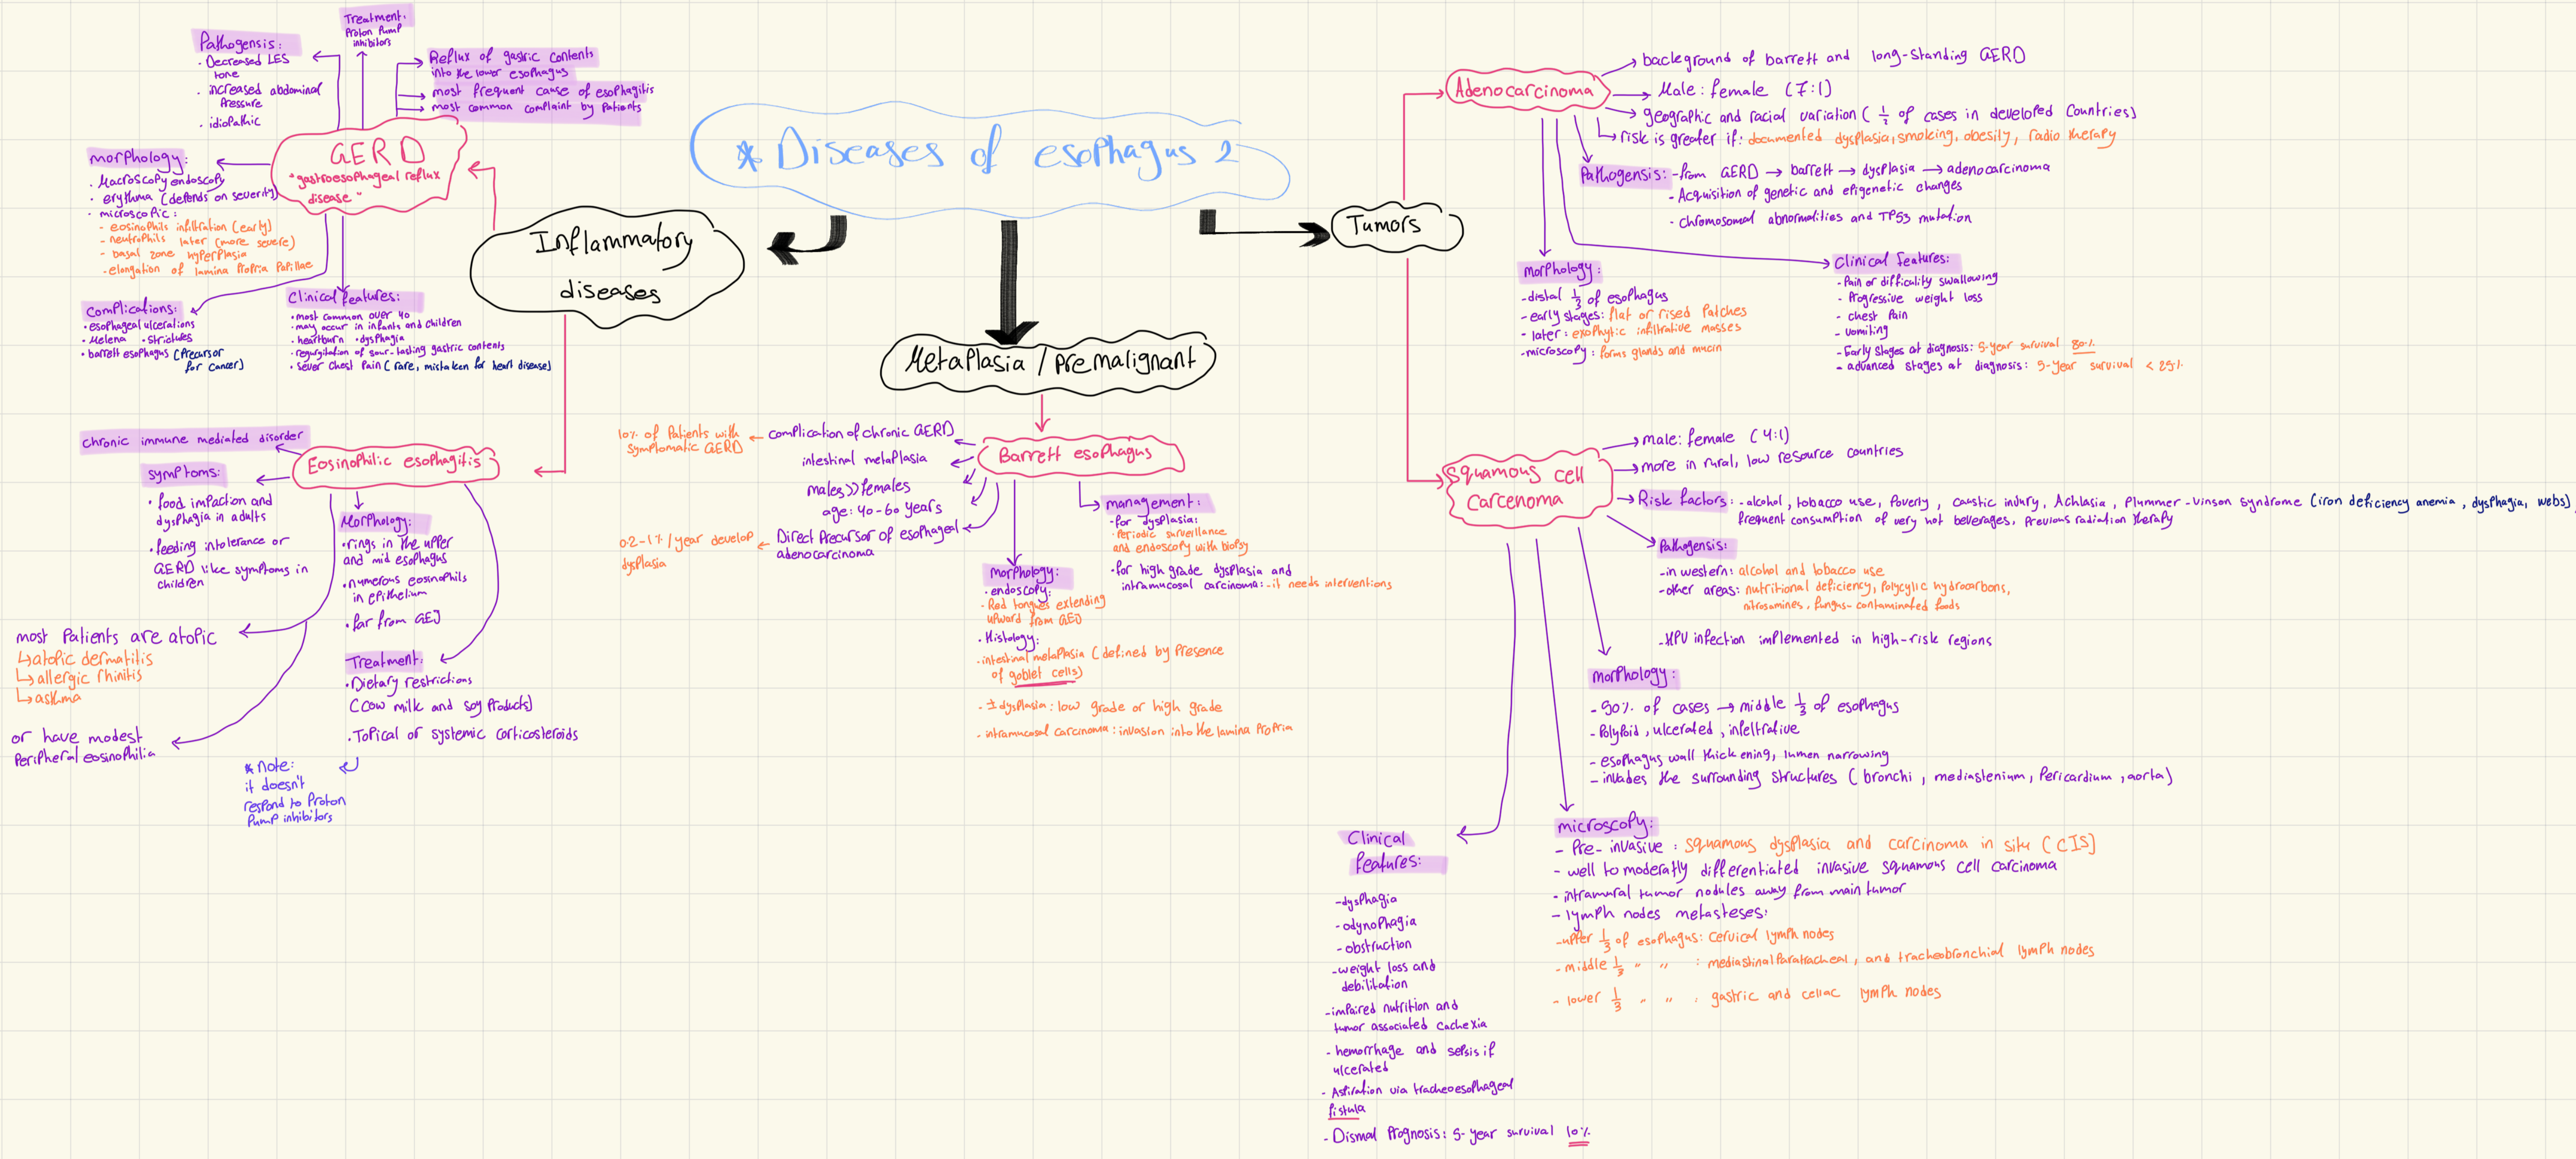 * Diseases of esophagus 2
Inflammatory
diseases
GERD
"gastroesophageal reflux
disease"
Pathogensis:
· Decreased LES
tone
· increased abdominal
Pressure
· idiopathic
Treatment:
Proton Pump
inhibitors
Reflux of gastric contents
into the lower esophagus
most frequent cause of esophagitis
most common complaint by Patients
morphology:
· Macroscopy endoscopy
· erythma (depends on severity)
· microscopic:
- eosinophils infiltration (early)
- neutrophils later (more severe)
- basal zone hyperplasia
- elongation of lamina Propria Papillae
Complications:
· esophageal ulcerations
· Melena · strictures
· barrett esophagus (Precursor
for cancer)
Clinical features:
· most common over 40
· may occur in infants and children
· heartburn · dysphagia
· regurgitation of sour-tasting gastric contents
· sever chest Pain (rare, mistaken for heart disease)
Eosinophilic esophagitis
chronic immune mediated disorder
symptoms:
· food impaction and
dysphagia in adults
· feeding intolerance or
GERD like symptoms in
children
Morphology:
· rings in the upper
and mid esophagus
· numerous eosinophils
in epithelium
· far from GEJ
most Patients are atopic
↳ atopic dermatitis
↳ allergic rhinitis
↳ asthma
or have modest
Peripheral eosinophilia
Treatment:
· Dietary restrictions
(cow milk and soy Products)
· Topical or systemic corticosteroids
* Note:
it doesn't
respond to Proton
Pump inhibitors
Metaplasia / Premalignant
Barrett esophagus
complication of chronic GERD
10% of Patients with
symptomatic GERD
intestinal metaplasia
males >> females
age: 40-60 years
Direct Precursor of esophageal
adenocarcinoma
0.2-1% / year develop
dysplasia
management:
· for dysplasia:
· Periodic surveillance
and endoscopy with biopsy
· for high grade dysplasia and
intramucosal carcinoma: - it needs interventions
morphology:
· endoscopy:
- Red tongues extending
upward from GEJ
· Histology:
- intestinal metaplasia (defined by Presence
of goblet cells)
- ± dysplasia: low grade or high grade
- intramucosal carcinoma: invasion into the lamina Propria
Tumors
Adenocarcinoma
background of barrett and long-standing GERD
Male: female (7:1)
geographic and racial variation ( 1/2 of cases in developed countries)
risk is greater if: documented dysplasia, smoking, obesity, radio therapy
Pathogensis: - from GERD → barrett → dysplasia → adenocarcinoma
- Acquisition of genetic and epigenetic changes
- chromosomal abnormalities and TP53 mutation
morphology:
- distal 1/3 of esophagus
- early stages: flat or rised Patches
- later: exophytic infiltrative masses
- microscopy: forms glands and mucin
Clinical features:
- Pain or difficulity swallowing
- Progressive weight loss
- chest Pain
- vomiting
- Early stages at diagnosis: 5-year survival 80%
- advanced stages at diagnosis: 5-year survival < 25%
Squamous cell
carcenoma
male: female (4:1)
more in rural, low resource countries
Risk factors: - alcohol, tobacco use, Poverty, caustic injury, Achlasia, Plummer-Vinson syndrome (iron deficiency anemia, dysphagia, webs)
frequent consumption of very hot beverages, Previous radiation therapy
Pathogensis:
- in western: alcohol and tobacco use
- other areas: nutritional deficiency, Polycyclic hydrocarbons,
nitrosamines, fungus-contaminated foods
- HPV infection implemented in high-risk regions
morphology:
- 50% of cases → middle 1/3 of esophagus
- Polypoid, ulcerated, infeltrative
- esophagus wall thickening, lumen narrowing
- invades the surrounding structures (bronchi, mediastenium, Pericardium, aorta)
microscopy:
- Pre-invasive: squamous dysplasia and carcinoma in situ (CIS)
- well to moderatly differentiated invasive squamous cell carcinoma
- intramural tumor nodules away from main tumor
- lymph nodes metasteses:
- upper 1/3 of esophagus: cervical lymph nodes
- middle 1/3 " " : mediastinal Paratracheal, and tracheobronchial lymph nodes
- lower 1/3 " " : gastric and celiac lymph nodes
Clinical
features:
- dysphagia
- odynophagia
- obstruction
- weight loss and
debilitation
- impaired nutrition and
tumor associated cachexia
- hemorrhage and sepsis if
ulcerated
- Aspiration via tracheoesophageal
fistula
- Dismal Prognosis: 5-year survival 10%